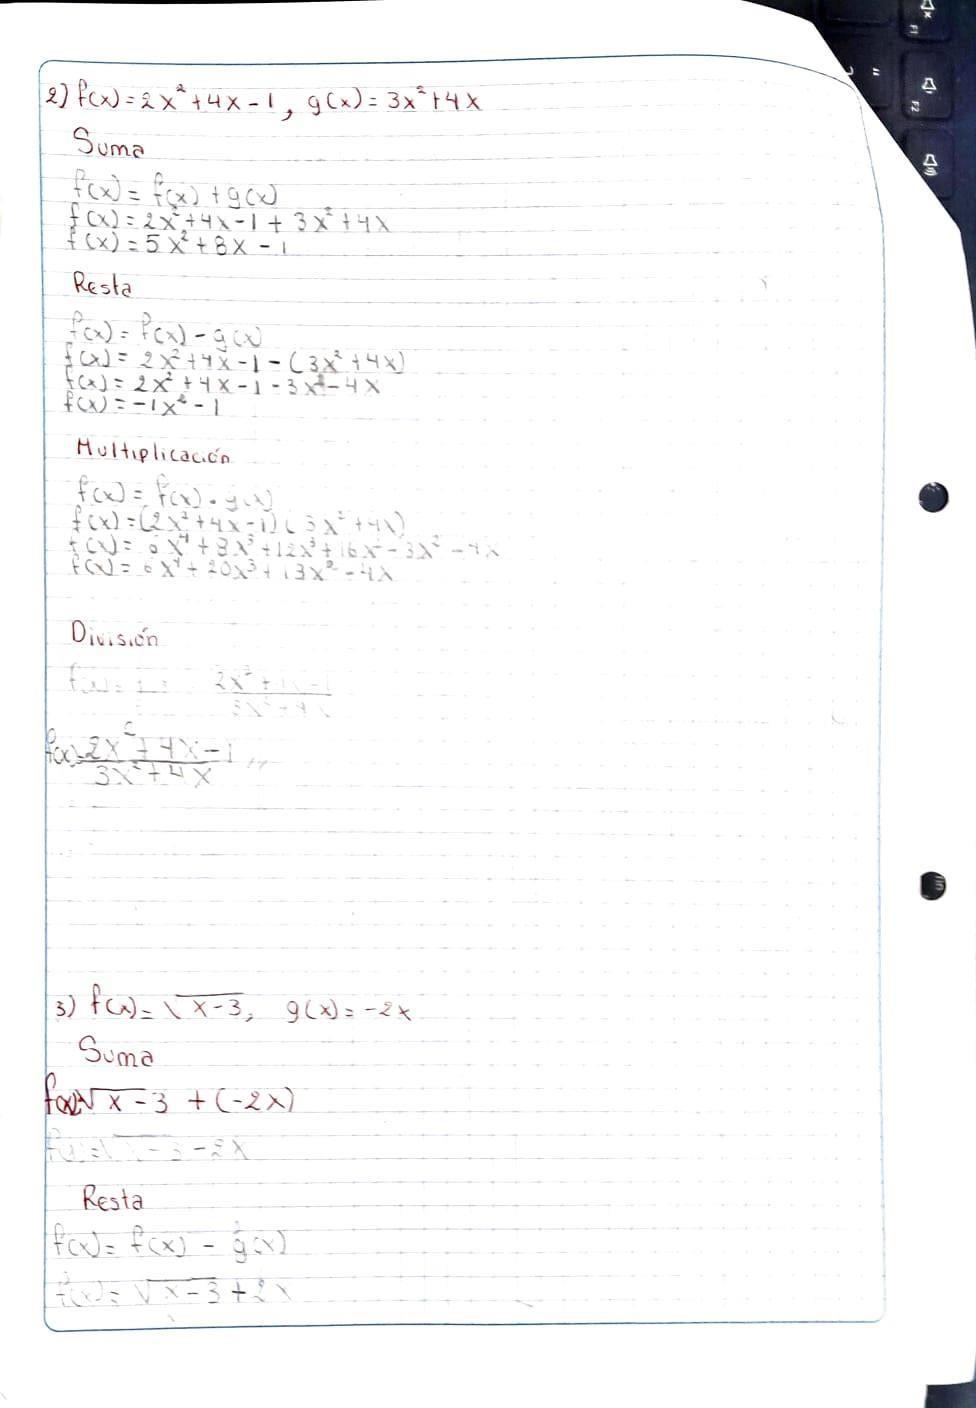 2) f(x) = 2x² + 4x - 1, g(x) = 3x² + 4x
Suma
f(x) = f(x) + g(x)
f(x) = 2x² + 4x - 1 + 3x² + 4x
f(x) = 5x² + 8x - 1
Resta
f(x) = f(x) - g(x)
f(x) = 2x² + 4x - 1 - (3x² + 4x)
f(x) = 2x² + 4x - 1 - 3x² - 4x
f(x) = -1x² - 1
Multiplicación
f(x) = f(x) · g(x)
f(x) = (2x² + 4x - 1)(3x² + 4x)
f(x) = 6x⁴ + 8x³ + 12x³ + 16x² - 3x² - 4x
f(x) = 6x⁴ + 20x³ + 13x² - 4x
División
2x² + 4x - 1
3x² + 4x
f(x) = 2x² + 4x - 1
3x² + 4x
3) f(x) = √x-3, g(x) = -2x
Suma
f(x) = √x-3 + (-2x)
f(x) = √x-3 - 2x
Resta
f(x) = f(x) - g(x)
f(x) = √x-3 + 2x